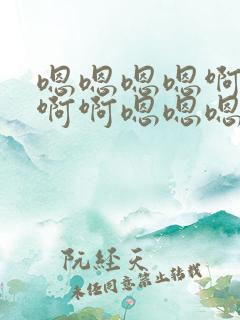 嗯嗯嗯嗯啊
啊啊嗯嗯嗯
阮经天
未经同意禁止转载